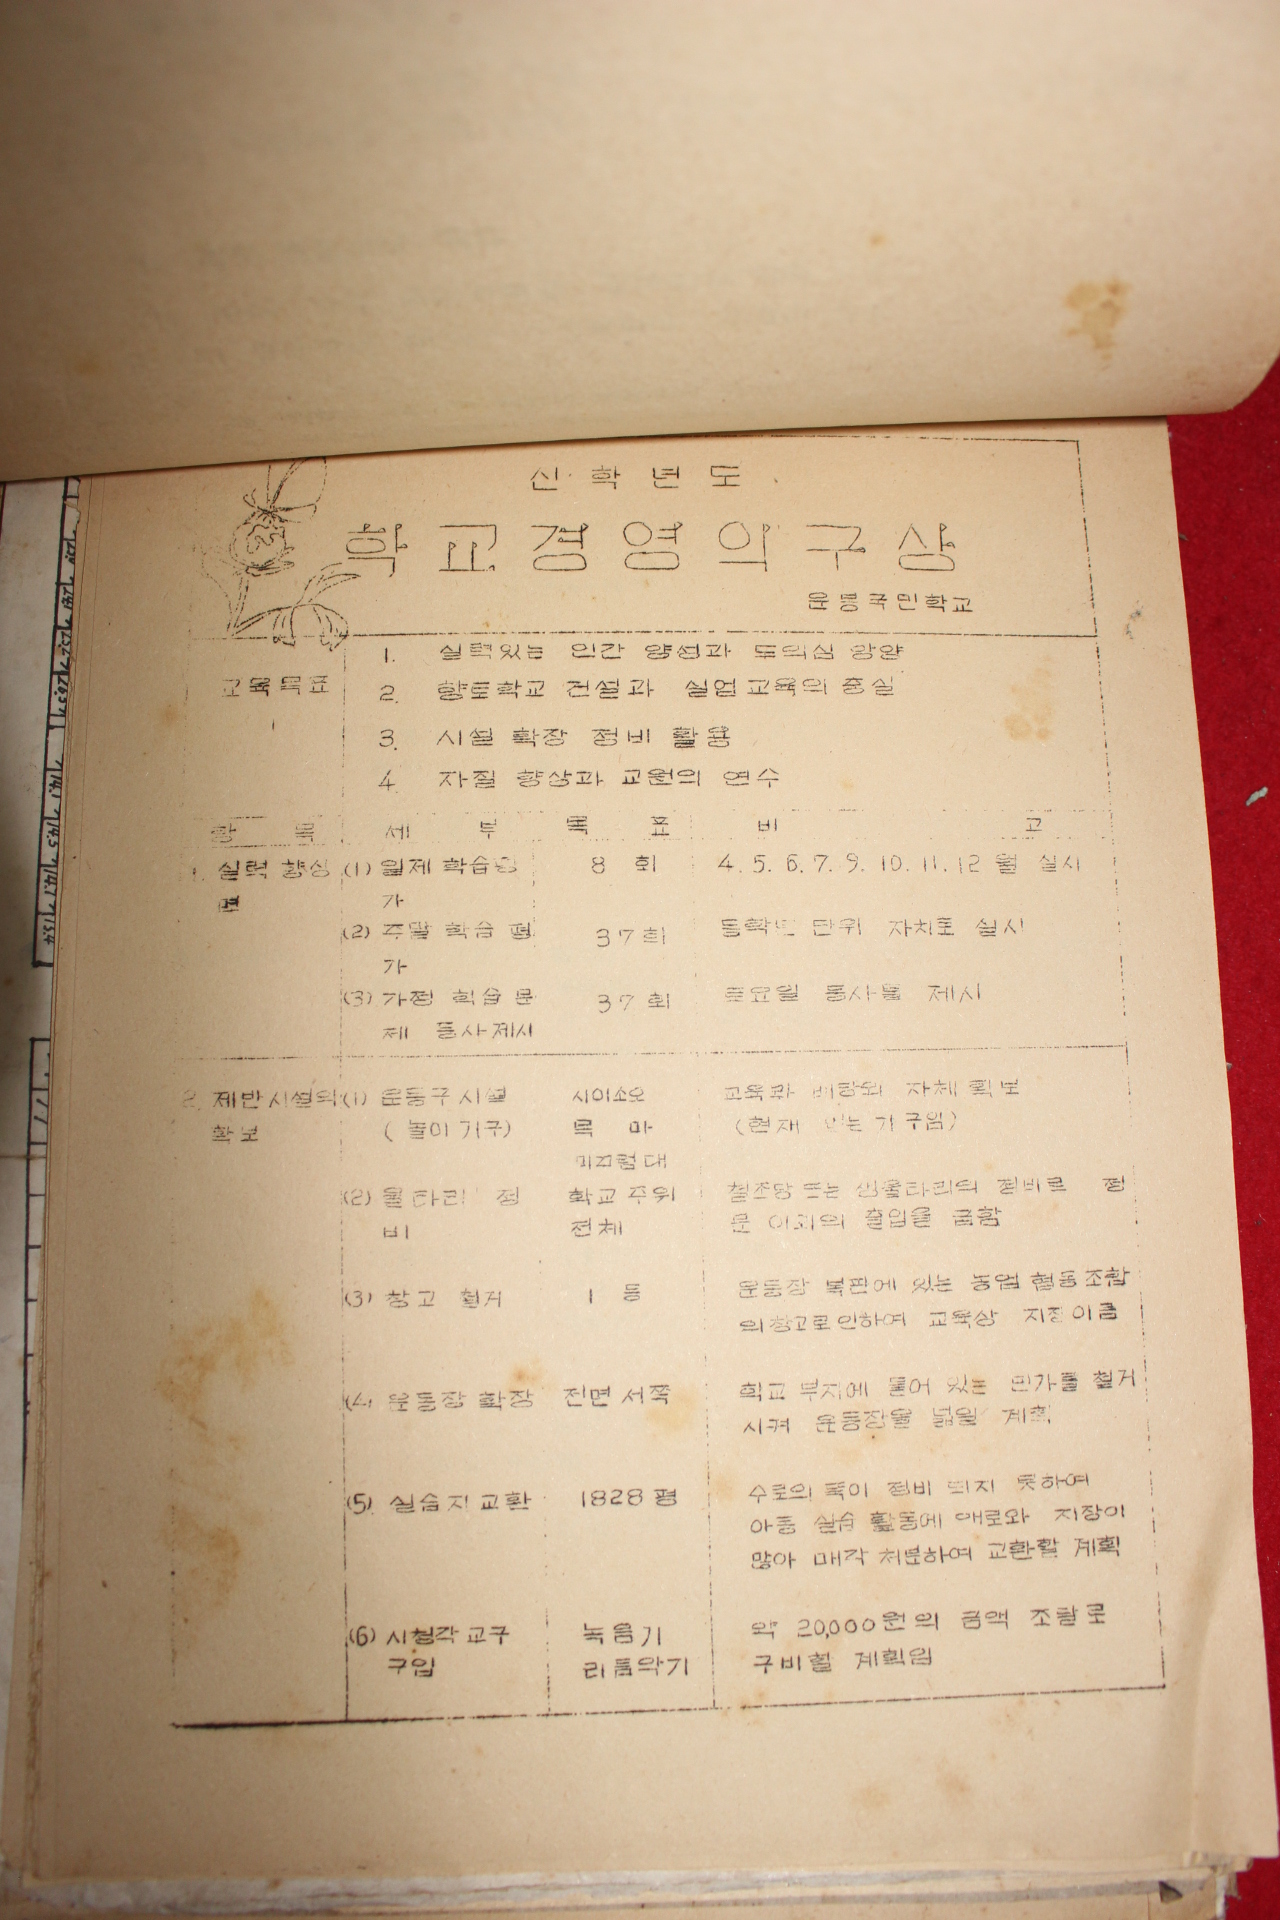 신 학 년 도
학 교 경 영 의 구 상
운봉국민학교
교육목표
1. 실력있는 인간 양성과 도의심 앙양
2. 향토학교 건설과 실업교육의 충실
3. 시설 확장 정비 활용
4. 자질 향상과 교원의 연수
항 목 세 부 목 표 비 고
1. 실력 향상 (1) 일제 학습평 8 회 4. 5. 6. 7. 9. 10. 11. 12 월 실시
면 가
(2) 주말 학습 평 37회 동학년 단위 자치로 실시
가
(3) 가정 학습 문 37회 토요일 등사물 제시
제 등사제시
2. 제반시설의 (1) 운동구시설 시이소오 교육과 자체 확보
확보 (놀이기구) 목 마 (현재 있는 기구임)
미끄럼대
(2) 울타리 정 학교주위 철조망 또는 생울타리의 정비로 정
비 전체 문 이외의 출입을 금함
(3) 창고 철거 1 동 운동장 복판에 있는 농업 협동조합
의창고로인하여 교육상 지장이큼
(4) 운동장 확장 전면서쪽 학교 부지에 물어 있는 민가를 철거
시켜 운동장을 넓힐 계획
(5) 실습지교환 1828평 수로의 폭이 정비 되지 못하여
아동 실습 활동에 애로와 지장이
많아 매각 처분하여 교환할 계획
(6) 시청각교구 녹음기 약 20,000원의 금액 조달로
구입 리듬악기 구비할 계획임